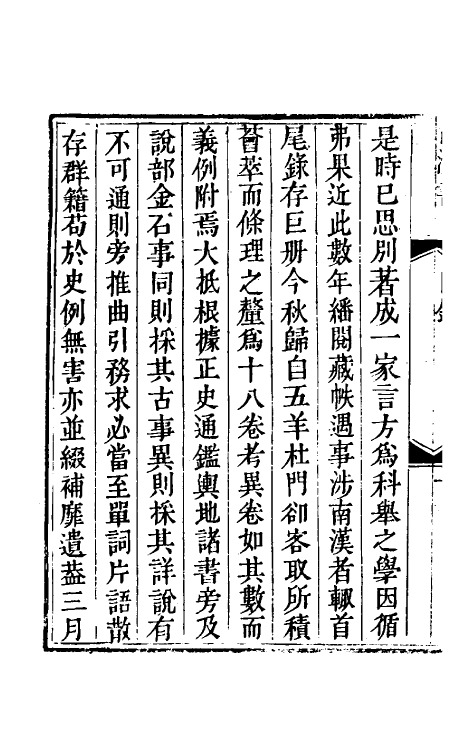 是時已思別著成一家言方爲科舉之學因循
弗果近此數年繙閱藏帙遇事涉南漢者輙首
尾錄存巨册今秋歸自五羊杜門卻客取所積
薈萃而條理之釐爲十八卷考異卷如其數而
義例附焉大抵根據正史通鑑輿地諸書旁及
說部金石事同則採其古事異則採其詳說有
不可通則旁推曲引務求必當至單詞片語散
存群籍苟於史例無害亦並綴補靡遺葢三月